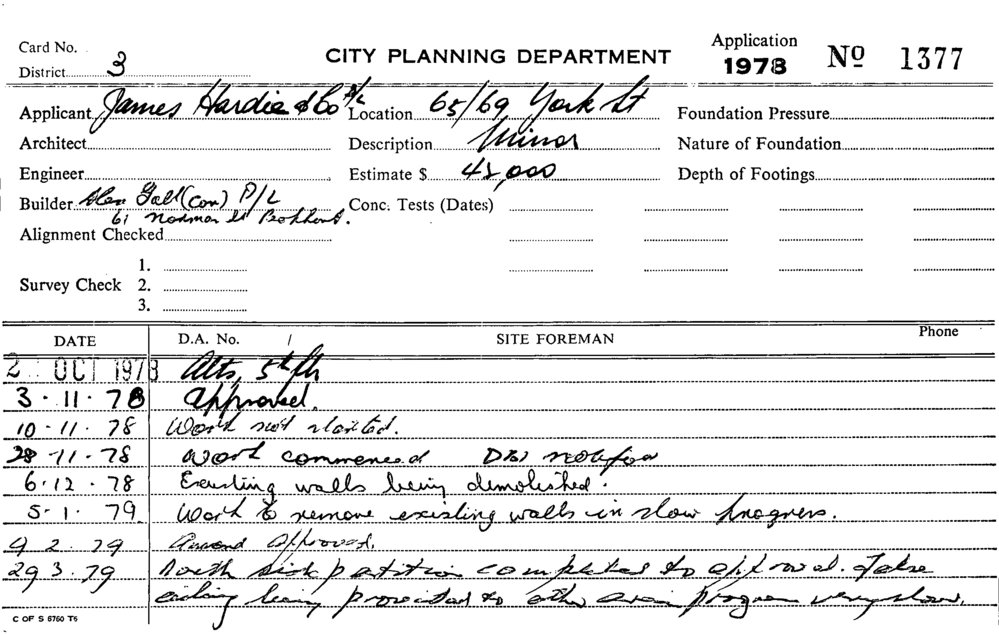 Card No. CITY PLANNING DEPARTMENT Application 1978 Nº 1377
District 3
Applicant James Hardie & Co P/L Location 65/69 York St Foundation Pressure
Architect Description Minor Nature of Foundation
Engineer Estimate $ 45,000 Depth of Footings
Builder Gall (Con) P/L Conc. Tests (Dates)
61 Norman St
Alignment Checked
1.
Survey Check 2.
3.
DATE D.A. No. / SITE FOREMAN Phone
2 OCT 1978 Alts, 5th flr
3.11.78 Approved.
10-11.78 Work not started.
28-11-78 Work commenced
6.12.78 Existing walls being demolished.
5-1.79 Work to remove existing walls in slow progress.
9 2.79 Amend approved.
29 3.79 North side partition completed to approval. False
ceiling being provided to other area progress very slow.
C OF S 6760 T6